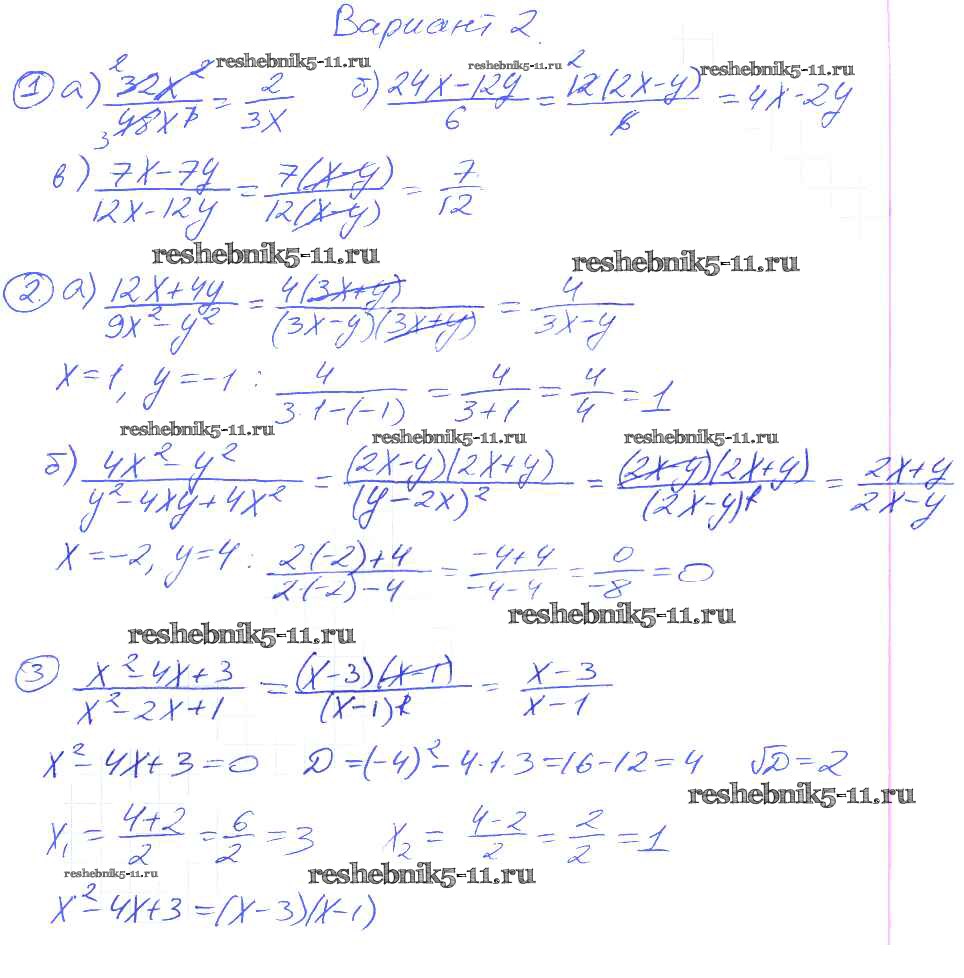 Вариант 2.
reshebnik5-11.ru reshebnik5-11.ru reshebnik5-11.ru
① а) 32x²/48x³ = 2/3x б) (24x-12y)/6 = 12(2x-y)/6 = 4x-2y
в) (7x-7y)/(12x-12y) = 7(x-y)/12(x-y) = 7/12
reshebnik5-11.ru reshebnik5-11.ru
② а) (12x+4y)/(9x²-y²) = 4(3x+y)/(3x-y)(3x+y) = 4/(3x-y)
x=1, y=-1 : 4/(3·1-(-1)) = 4/(3+1) = 4/4 = 1
reshebnik5-11.ru reshebnik5-11.ru reshebnik5-11.ru
б) (4x²-y²)/(y²-4xy+4x²) = (2x-y)(2x+y)/(y-2x)² = (2x-y)(2x+y)/(2x-y)² = (2x+y)/(2x-y)
x=-2, y=4 : (2·(-2)+4)/(2·(-2)-4) = (-4+4)/(-4-4) = 0/-8 = 0
reshebnik5-11.ru reshebnik5-11.ru
③ (x²-4x+3)/(x²-2x+1) = (x-3)(x-1)/(x-1)² = (x-3)/(x-1)
x²-4x+3=0 D=(-4)²-4·1·3=16-12=4 √D=2
reshebnik5-11.ru
x₁ = (4+2)/2 = 6/2 = 3 x₂ = (4-2)/2 = 2/2 = 1
reshebnik5-11.ru reshebnik5-11.ru
x²-4x+3=(x-3)(x-1)